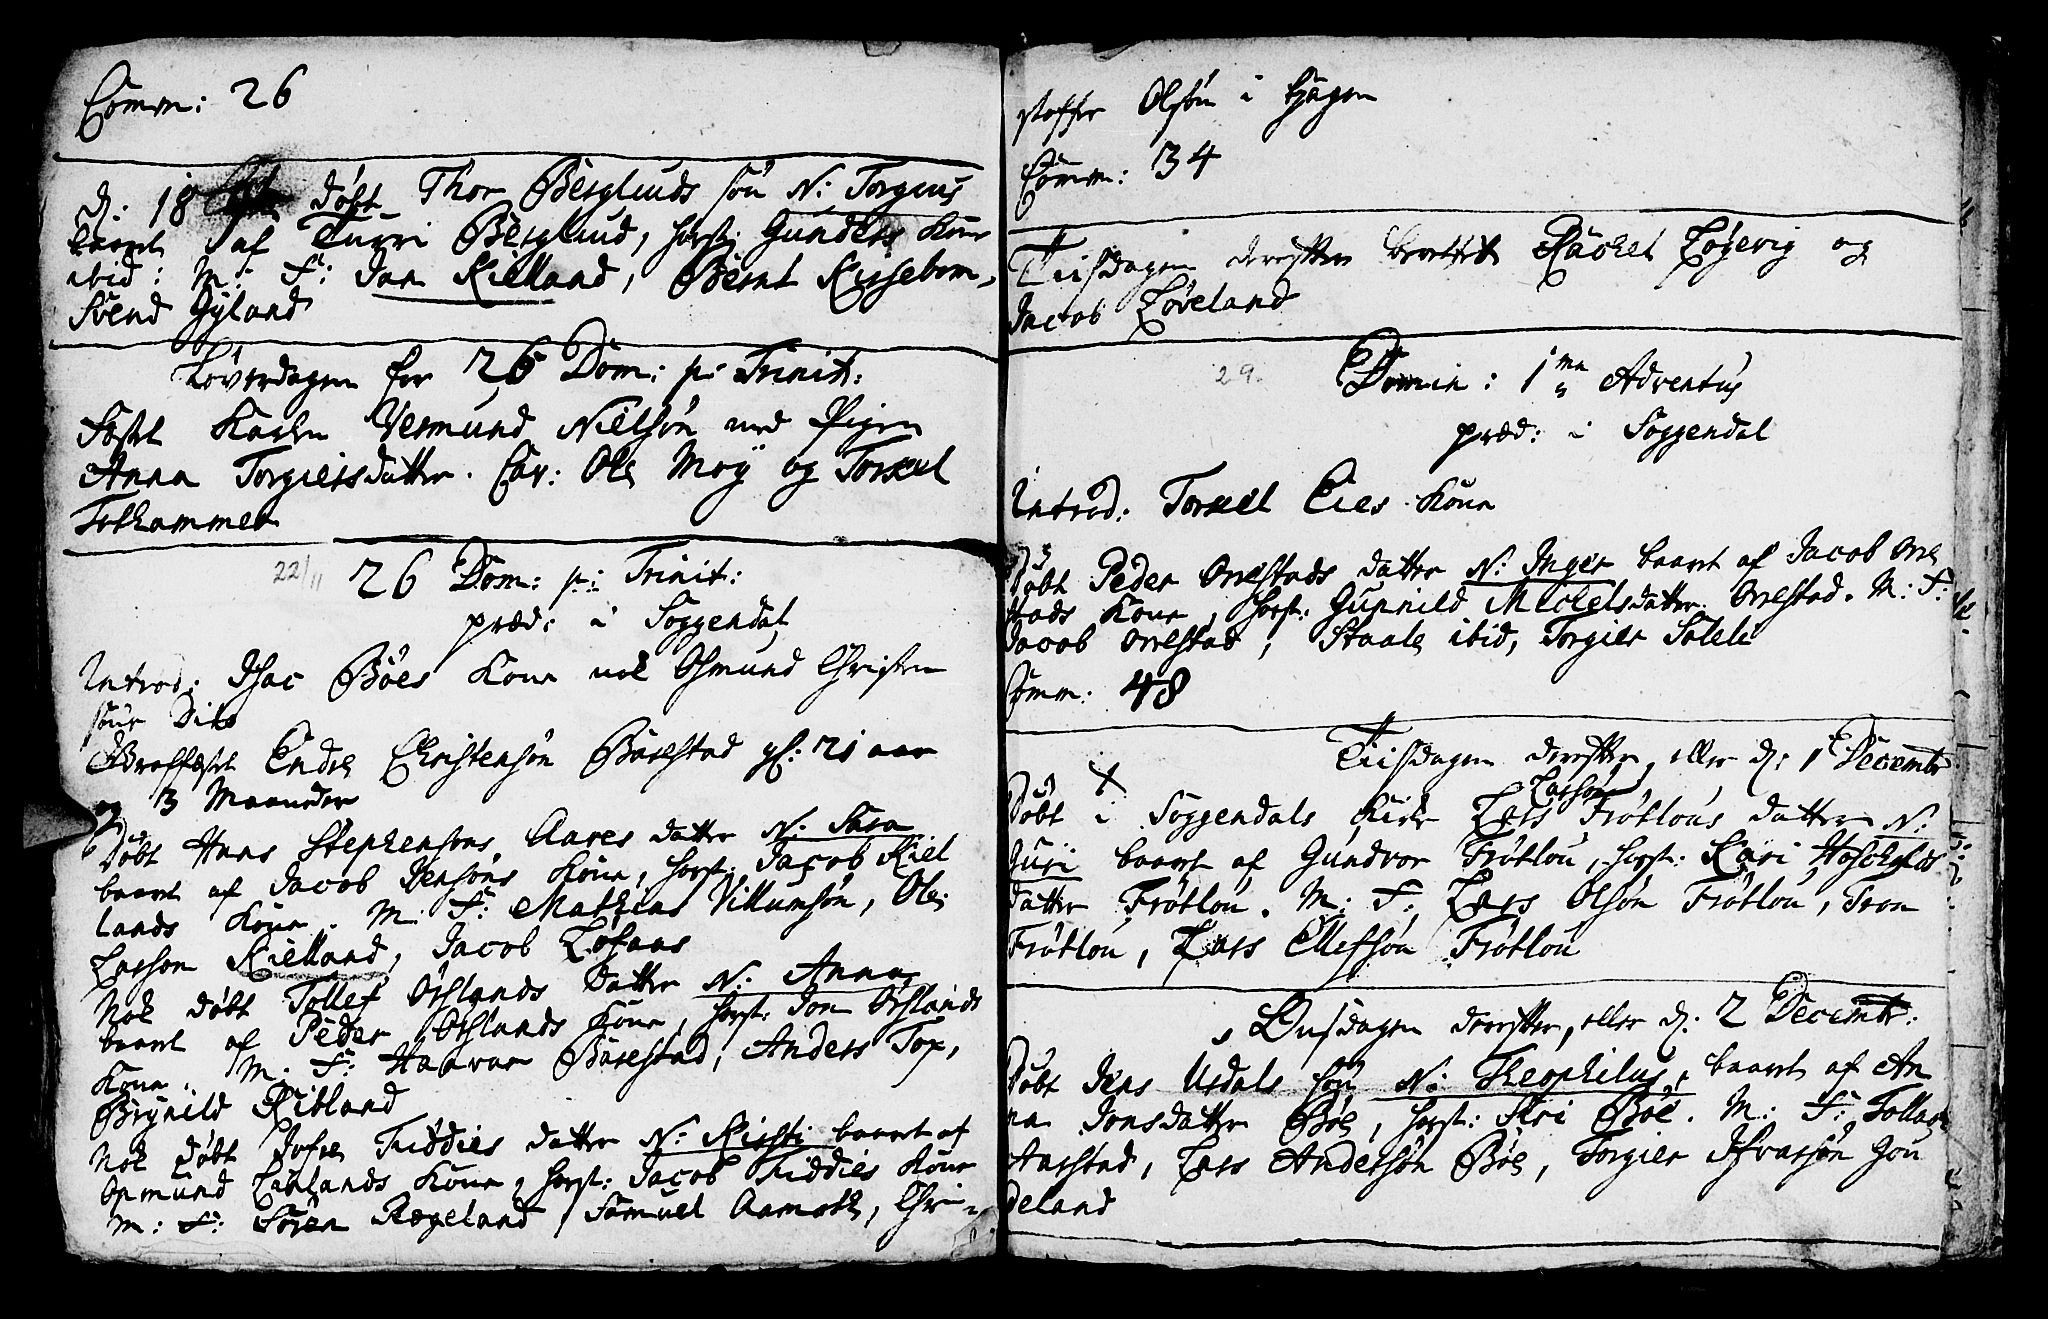 Comm: 26
d: 18 døbt Thor Berglunds søn N: Torgius
baaret af Turri Berglund, horst: Gunders Kone
ibid: M: F: Jan Kielland, Berent Kissebom,
Svend Gyland
Løverdagen for 26 Dom: p: Trinit:
Fæstet Karlen Vermund Nielsøn med Pigen
Anna Torgiersdatter. Cav: Ole Moÿ og Torkel
Fothammer
22/11 26 Dom: p: Trinit:
præd: i Soggendal
Introd: Isac Bøes Kone nok Osmund Christen
søns Dito
Troffæstet Endre Christensøn Barestad gl: 21 aar
og 3 Maaneder
Døbt Hans Stephensøns Aares datter N: Sara
baaret af Jacob Jensøns Kone, horst: Jacob Kiel
lands Kone. M: F: Mathias Villumsøn, Ole
Larsøn Kielland, Jacob Løfaas
Nok døbt Tollef Østlands datter N: Anna
baaret af Peder Østlands Kone, horst: Jon Østlands
Kone. M: F: Haavar Barestad, Anders Tox,
Brynild Ribland
Nok døbt Tofre Friddies datter N: Kisti baaret af
Omund Lavlands Kone, horst: Jacob Friddies Kone
M: F: Søren Rægeland, Samuel Aamoth, Chri-
stoffer Olsøn i Hagen
Comm: 34
Tiisdagen derefter Rachel Løgevig og
Jacob Løveland
29. Domin: 1ma Adventus
præd: i Soggendal
Introd: Torkel Eies Kone
Døbt Peder Orrestads datter N: Inger baaret af Jacob Orre
stads Kone, horst: Gunnild Michelsdatter Orrestad. M: F:
Jacob Orrestad, Staale ibid, Torgier Solele
Comm: 48
Tiisdagen derefter, eller d: 1 Decembr
X Larsøn
Døbt i Soggendals Kirke Lars Frøtlous datter N:
Guri baaret af Gundvor Frøtlou, horst: Kari Hoskylds
datter Frøtlou. M: F: Lars Olsøn Frøtlou, Tron
Frøtlou, Lars Ellefsøn Frøtlou
Onsdagen derefter, eller d: 2 Decembr:
Døbt Jens Urdals søn N: Theophilus, baaret af An
na Jonsdatter Bøe, horst: Siri Bøe. M: F: Tollag
Aarstad, Lars Andersøn Bøe, Torgier Ifvarsøn Gou
deland